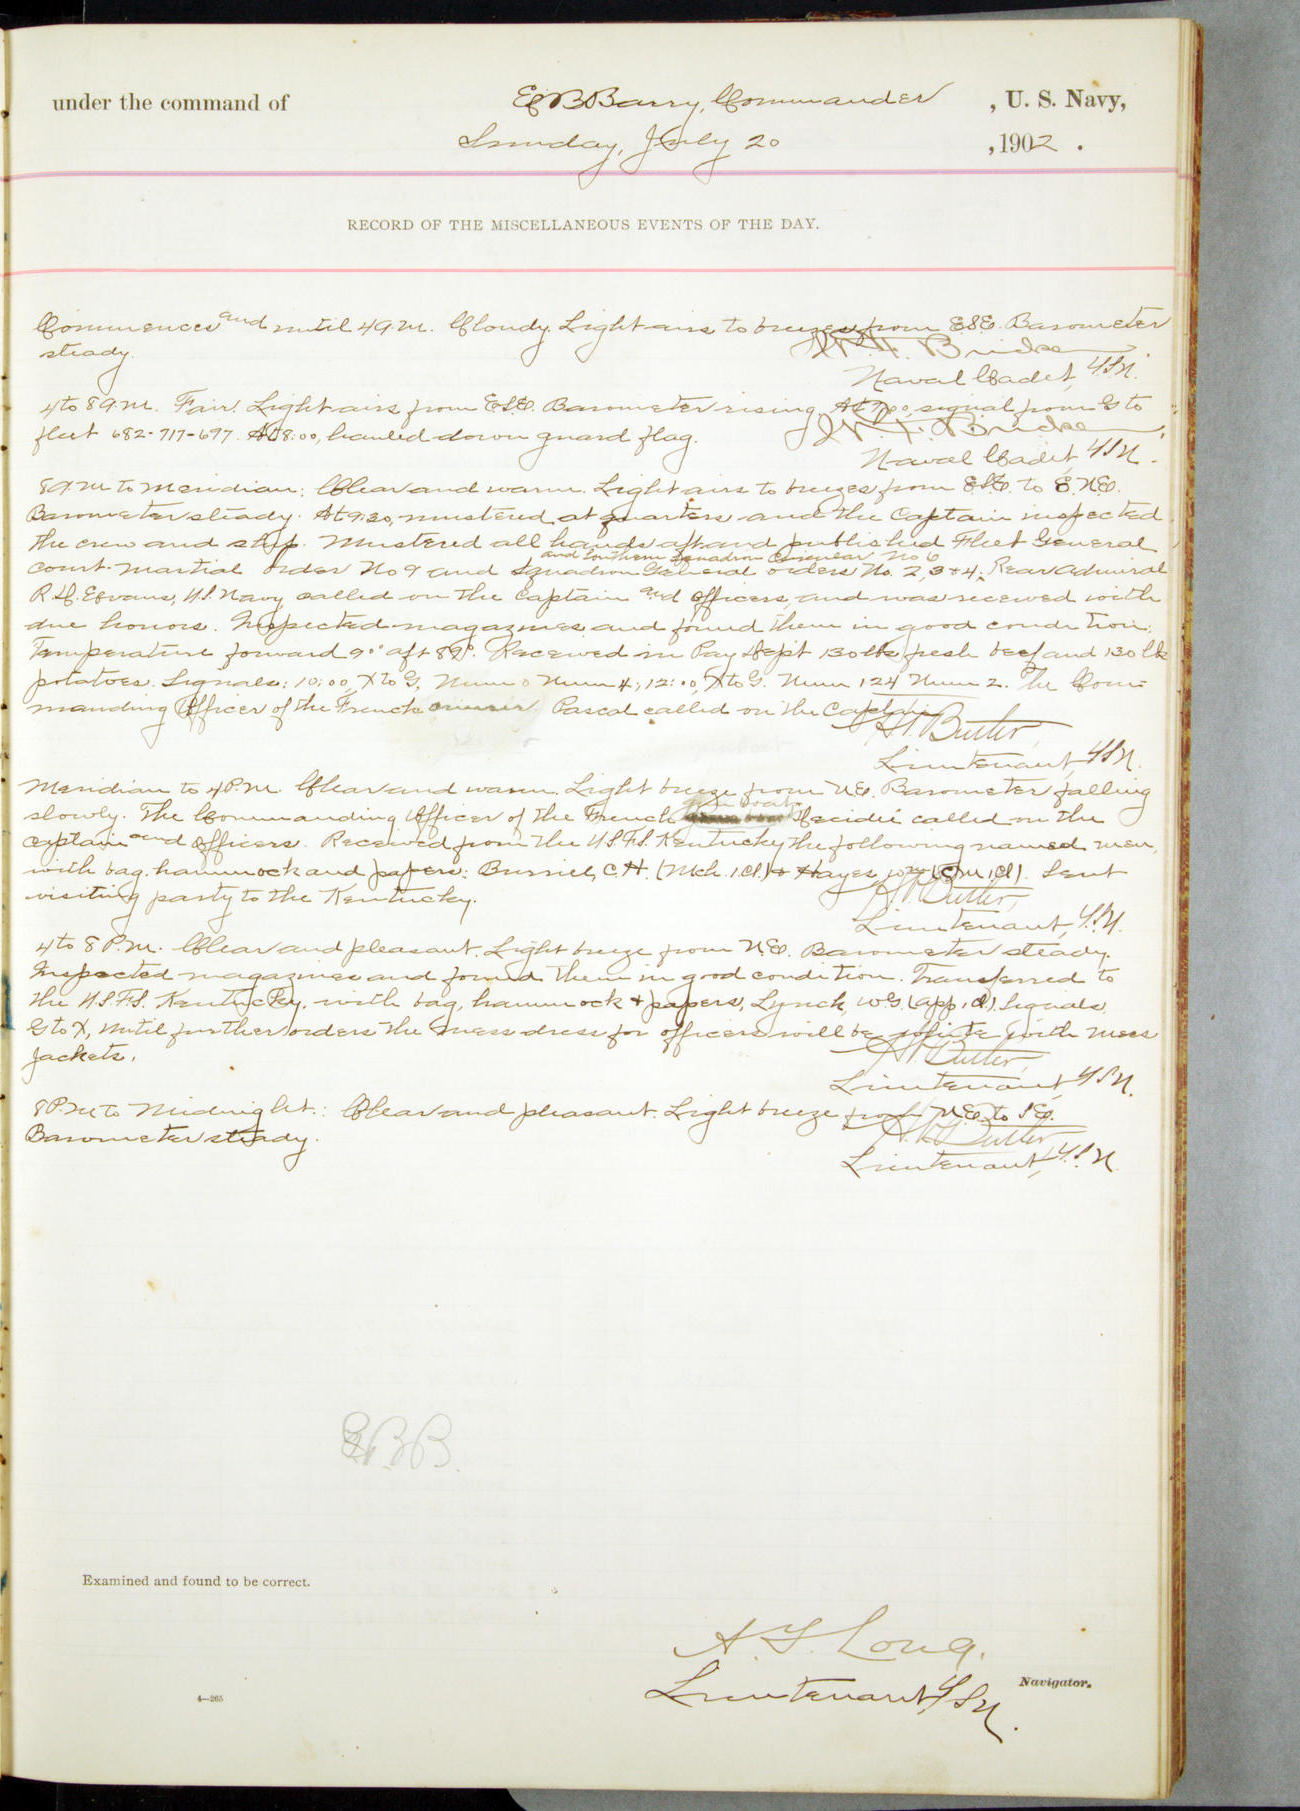 under the command of E B Barry, Commander , U. S. Navy,
Sunday, July 20 , 1902 .
RECORD OF THE MISCELLANEOUS EVENTS OF THE DAY.
Commences and until 4 A.M. Cloudy. Light airs to breezes from E.S.E. Barometer
steady.
Naval Cadet, U.S.N.
4 to 8 A.M. Fair. Light airs from E.S.E. Barometer rising. At 7:00, signal from G to
fleet 682-717-697. At 8:00, hauled down guard flag.
Naval Cadet, U.S.N.
8 A.M. to Meridian: Clear and warm. Light airs to breezes from E.S.E. to E.N.E.
Barometer steady. At 9:30, mustered at quarters and the Captain inspected
the crew and ship. Mustered all hands aft and published Fleet General
and Southern Squadron Circular No 6
court-martial order No 9 and Squadron General orders No. 2, 3 & 4. Rear Admiral
R. D. Evans, U.S. Navy, called on the Captain and officers, and was received with
due honors. Inspected magazines and found them in good condition.
Temperature forward 90° aft 89°. Received in Pay Dept 130 lbs fresh beef and 130 lbs
potatoes. Signals: 10:00, X to G, Num 0 Num 4; 12:00, X to G. Num 124 Num 2. The Com-
manding Officer of the French cruiser Pascal called on the Captain.
H. Butler,
Lieutenant, U.S.N.
Meridian to 4 P.M. Clear and warm. Light breeze from N.E. Barometer falling
gun boat
slowly. The Commanding Officer of the French Decidée called on the
Captain and officers. Received from the U.S.F.S. Kentucky the following named men,
with bag, hammock and papers: C.H. (Mch. 1 Cl.) & Hayes, Sent
visiting party to the Kentucky.
H. Butler,
Lieutenant, U.S.N.
4 to 8 P.M. Clear and pleasant. Light breeze from N.E. Barometer steady.
Inspected magazines and found them in good condition. Transferred to
the U.S.F.S. Kentucky, with bag, hammock & papers, Lynch, W.G. (app, 1 cl). Signals
G to X, Until further orders the mess dress for officers will be white with mess
jackets.
H. Butler,
Lieutenant, U.S.N.
8 P.M. to Midnight: Clear and pleasant. Light breeze from N.E. to S.E.
Barometer steady.
H. Butler
Lieutenant, U.S.N.
E.B.B.
Examined and found to be correct.
A. T. Long.
Lieutenant, U.S.N. Navigator.
4—265